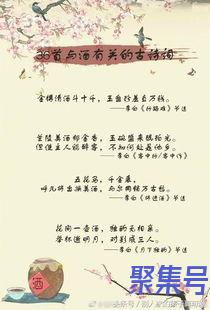 36首与酒有关的古诗词
金樽清酒斗十千，玉盘珍羞直万钱。
——李白《行路难》节选
兰陵美酒郁金香，玉碗盛来琥珀光。
但使主人能醉客，不知何处是他乡。
——李白《客中行/客中作》
五花马，千金裘，
呼儿将出换美酒，与尔同销万古愁。
——李白《将进酒》节选
花间一壶酒，独酌无相亲。
举杯邀明月，对影成三人。
——李白《月下独酌》节选
酒
聚集号